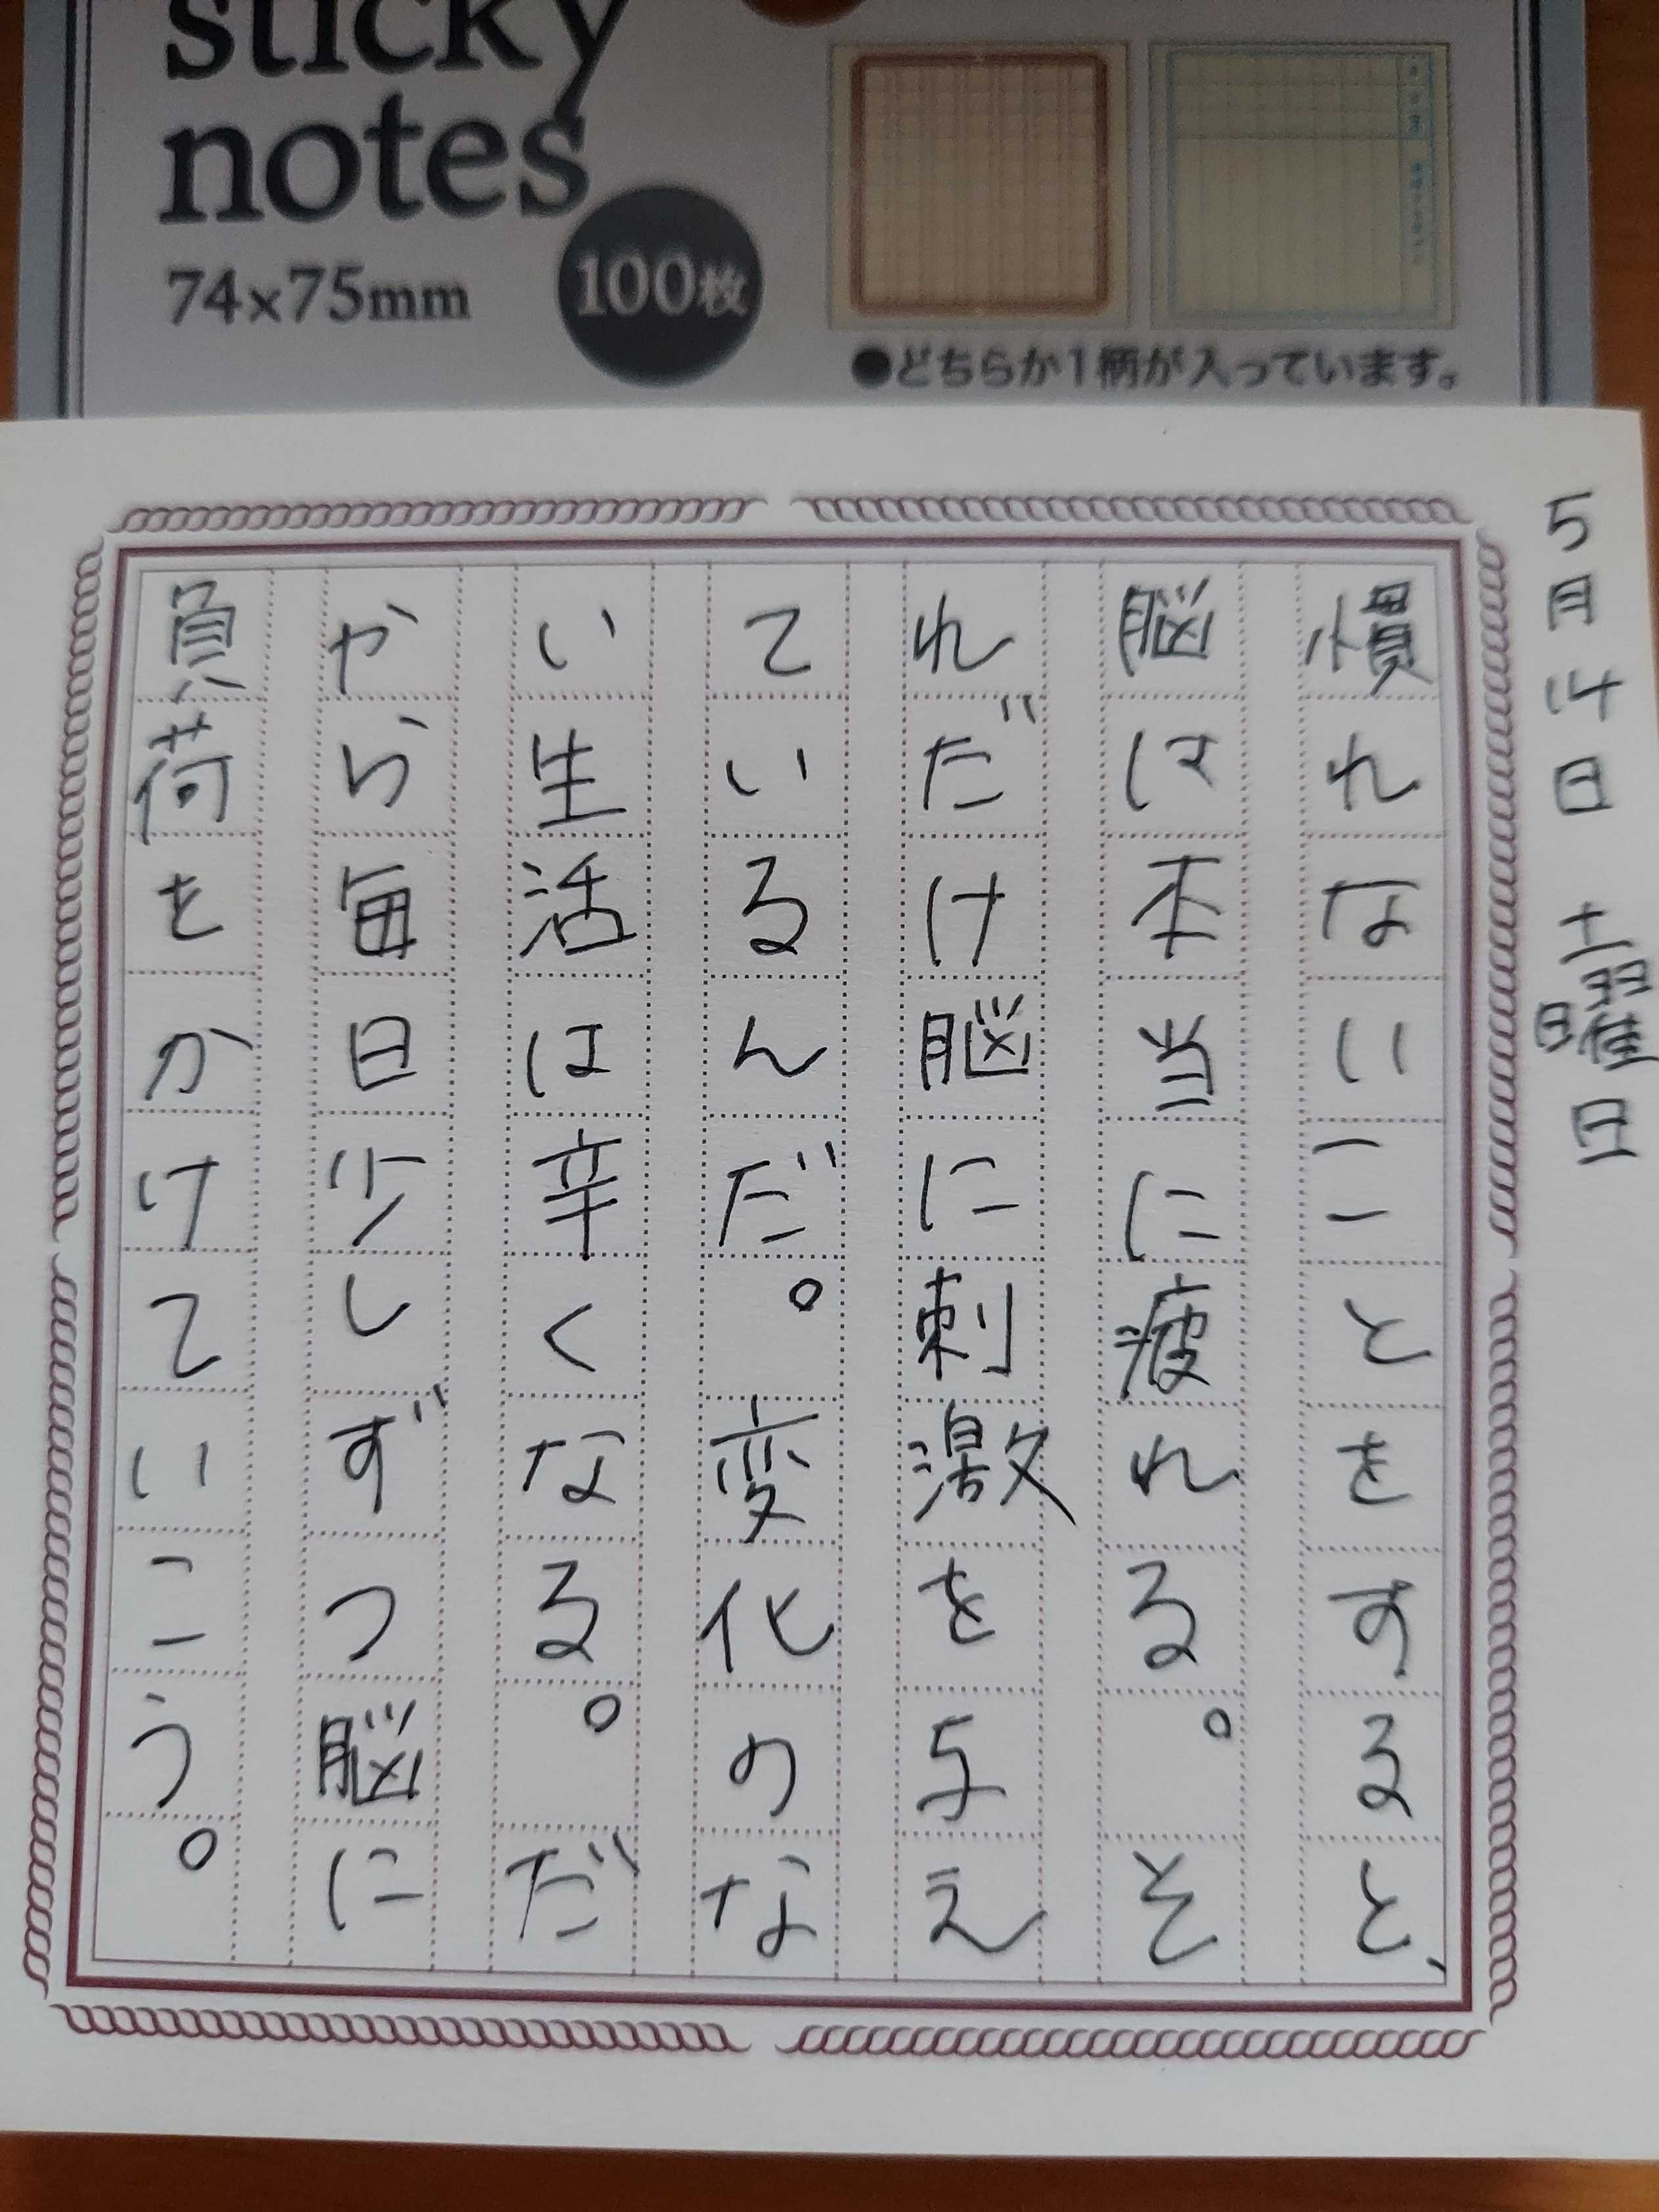 sticky
notes
74×75mm
100枚
●どちらか1柄が入っています。
5月14日 土曜日
慣れないことをすると、
脳は本当に疲れる。そ
れだけ脳に刺激を与え
ているんだ。変化のな
い生活は辛くなる。だ
から毎日少しずつ脳に
負荷をかけていこう。